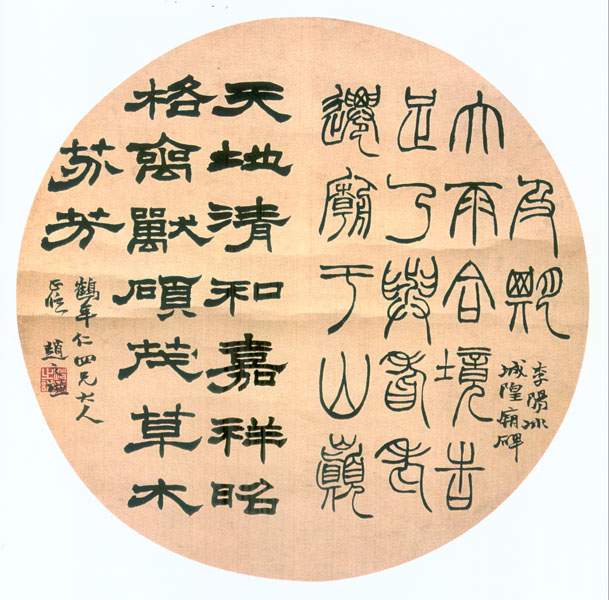 及期
大雨合境告
足乃與耆老
遷廟于山巔
李陽冰
城隍廟碑
天地清和嘉祥昭
格禽獸碩茂草木
芬芳
鶴年仁四兄大人
正 趙之謙